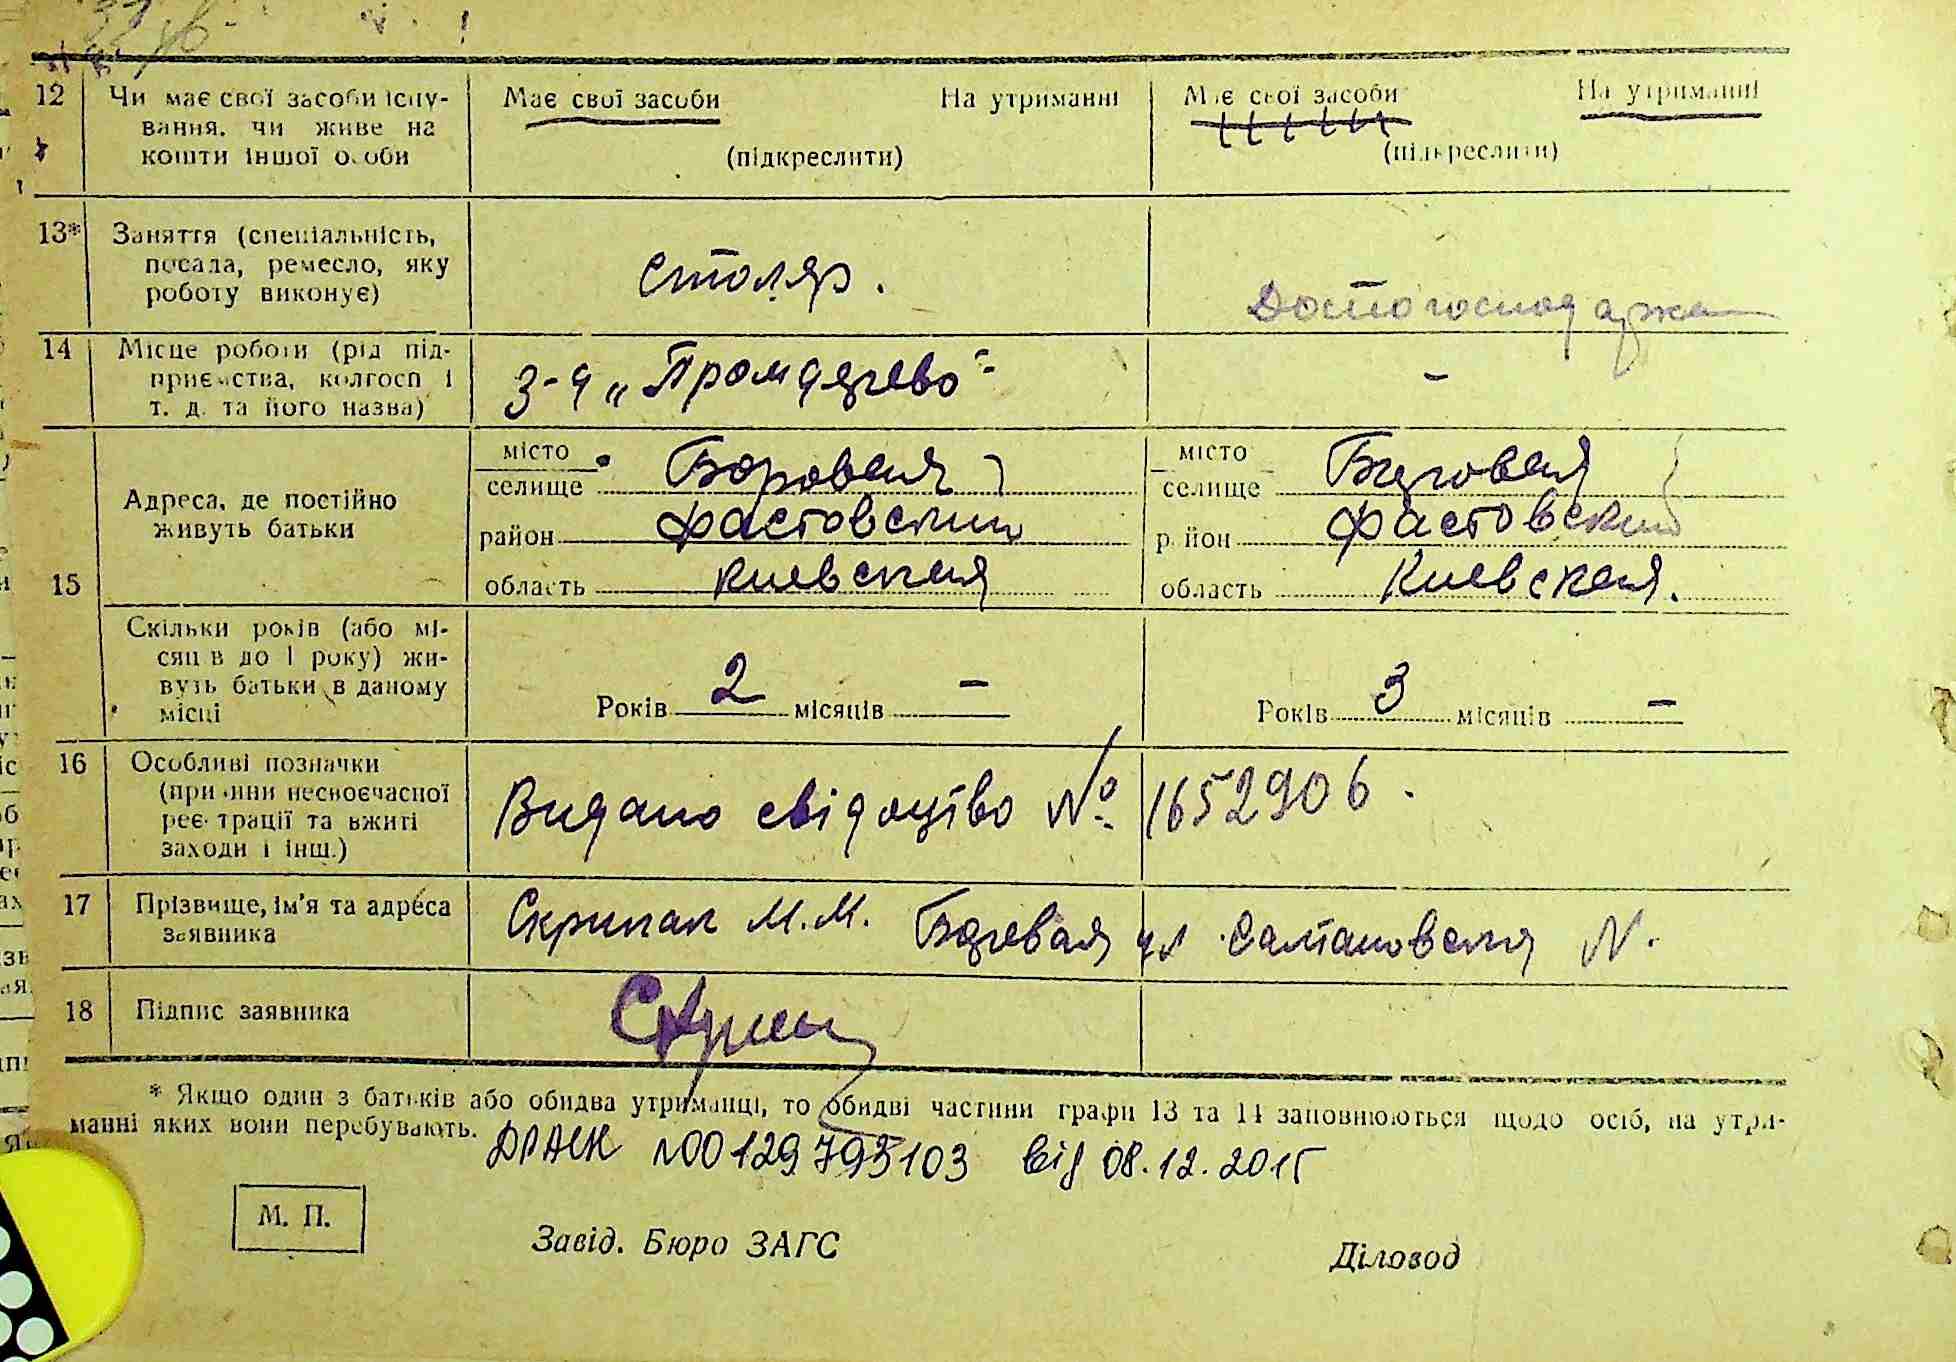 12 Чи має свої засоби існу-
вання, чи живе на
кошти іншої особи
Має свої засоби На утриманні
(підкреслити)
Має свої засоби На утриманні
(підкреслити)
13* Заняття (спеціальність,
посада, ремесло, яку
роботу виконує)
столяр.
Домогосподарка
14 Місце роботи (рід під-
приємства, колгосп і
т. д. та його назва)
З-д „Промдерево"
-
15 Адреса, де постійно
живуть батьки
місто
селище Боровая
район Фастовский
область Киевская
місто
селище Боровая
район Фастовский
область Киевская.
Скільки років (або мі-
сяців до 1 року) жи-
вуть батьки в даному
місці
Років 2 місяців —
Років 3 місяців —
16 Особливі позначки
(причини несвоєчасної
реєстрації та вжиті
заходи і інш.)
Видано свідоцтво № 1652906.
17 Прізвище, ім'я та адреса
заявника
Скрипак М.М. Боровая ул. Салтановская N.
18 Підпис заявника
* Якщо один з батьків або обидва утриманці, то обидві частини графи 13 та 14 заповнюються щодо осіб, на утри-
манні яких вони перебувають.
ДРАСК №00129793103 від 08.12.2015
М. П.
Завід. Бюро ЗАГС
Діловод